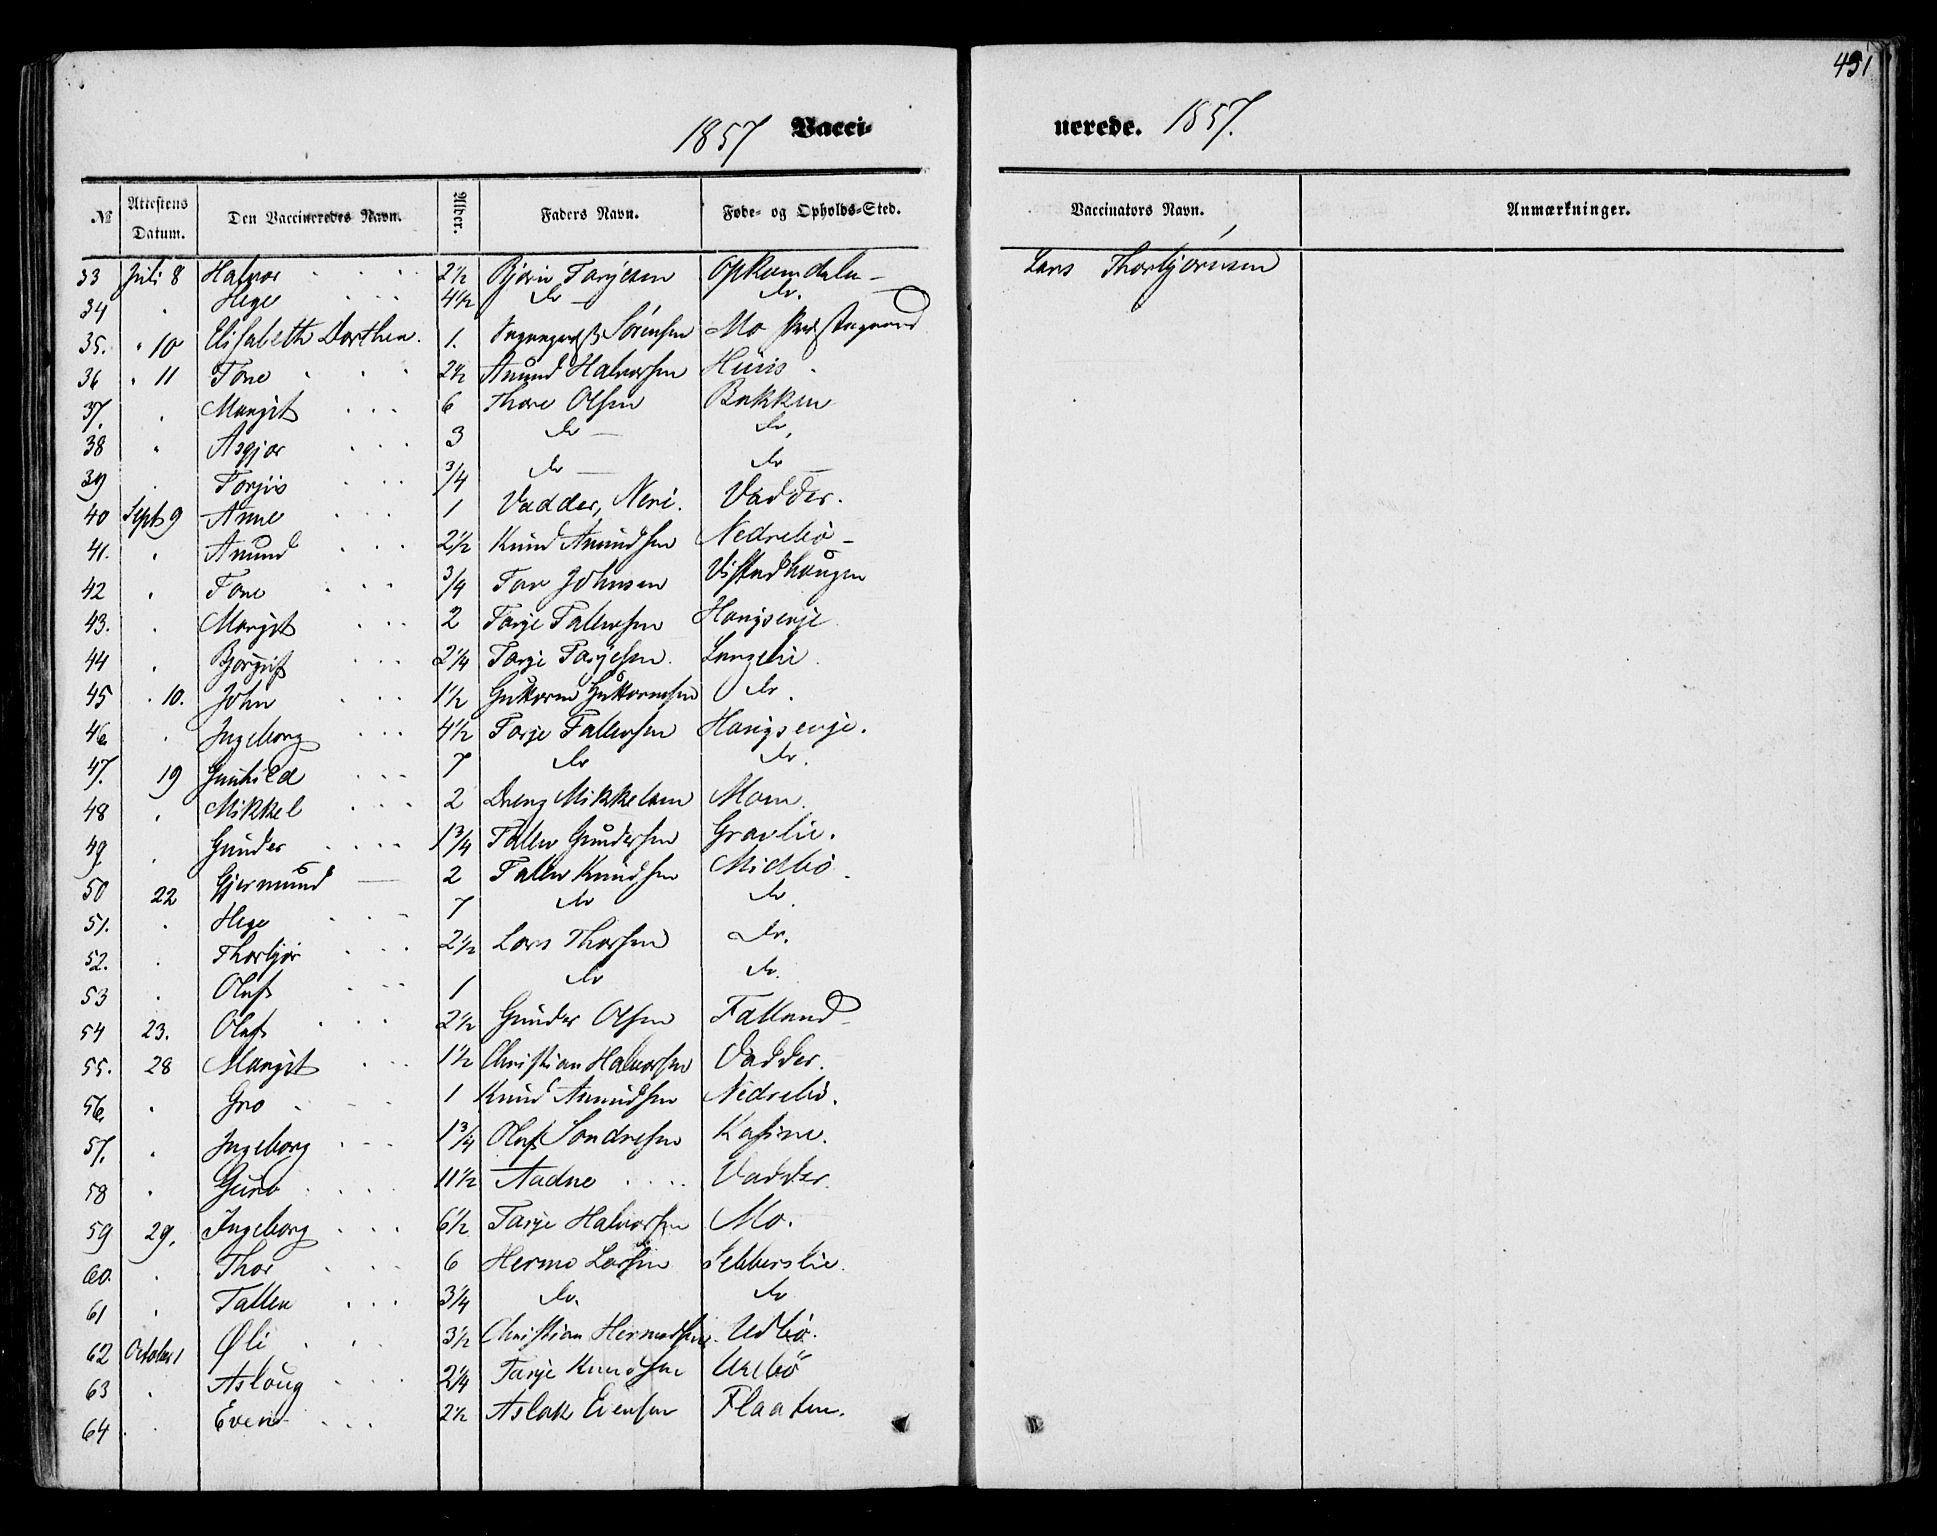 451
1857 Vacci-
nerede. 1857.
№ Attestens Datum. Den Vaccineredes Navn. Alder. Faders Navn. Føde- og Opholds-Sted. Vaccinators Navn. Anmærkninger.
33 Juli 8 Halvor 2½ Bjørn Tarjesen Opkomdalen Lars Thorbjørnsen
34 Hege 4½ do do.
35. " 10 Elisabeth Dorthea. 1. Sørensen Mo Præstegaard
36 " 11 Tone 2½ Anund Halvorsen Huus
37. Margit 6 Thore Olsen Bakken
38 " Asgjær 3 do do,
39 Torjus ¾ do do
40 Sept 9 Anne 1 Vadder, Neri. Vadder.
41. " Anund 2½ Knud Anundsen Nedrebø
42 " Tone ¾ Tov Johnsen Vistadhaugen
43. " Margit 2 Tarje Tallevsen Haugsenje
44 " Bjørgulf 2¼ Tarje Tarjesen. Langelie.
45 " 10. John 1½ Guttorm Guttormsen do.
46 " Ingeborg 4½ Tarje Tallevsen Haugsenje.
47. 19 Gunhild 7 do do.
48 " Mikkel 2 Dreng Mikkelsen Moen.
49 " Gunder 1¾ Tallev Gundersen Gravlie.
50 22 Gjermund 2 Tallev Knudsen Midbø.
51. " Hege 7 do do.
52. " Thorbjør 2½ Lars Thorsen do.
53 " Oluf 1 do do.
54 23. Oluf 2½ Gunder Olsen Falland
55. 28 Margit 1½ Christian Halvorsen Vadder.
56. " Gro 1 Knud Anundsen Nedrebø.
57. " Ingeborg 1¾ Oluf Sondresen Kasine.
58 " Guro 11½ Aadne Vadder.
59 29. Ingeborg 6½ Tarje Halvorsen Mo.
60. " Thor 6 Hermo Larsen Sebberslie.
61 " Tallev 3¼ do. do
62 October 1 Øli 3½ Christian Hermodsen. Udbø.
63 " Aslaug 2¼ Tarje Knudsen Urebø
64 " Even 2½ Aslak Evensen Flaaten.